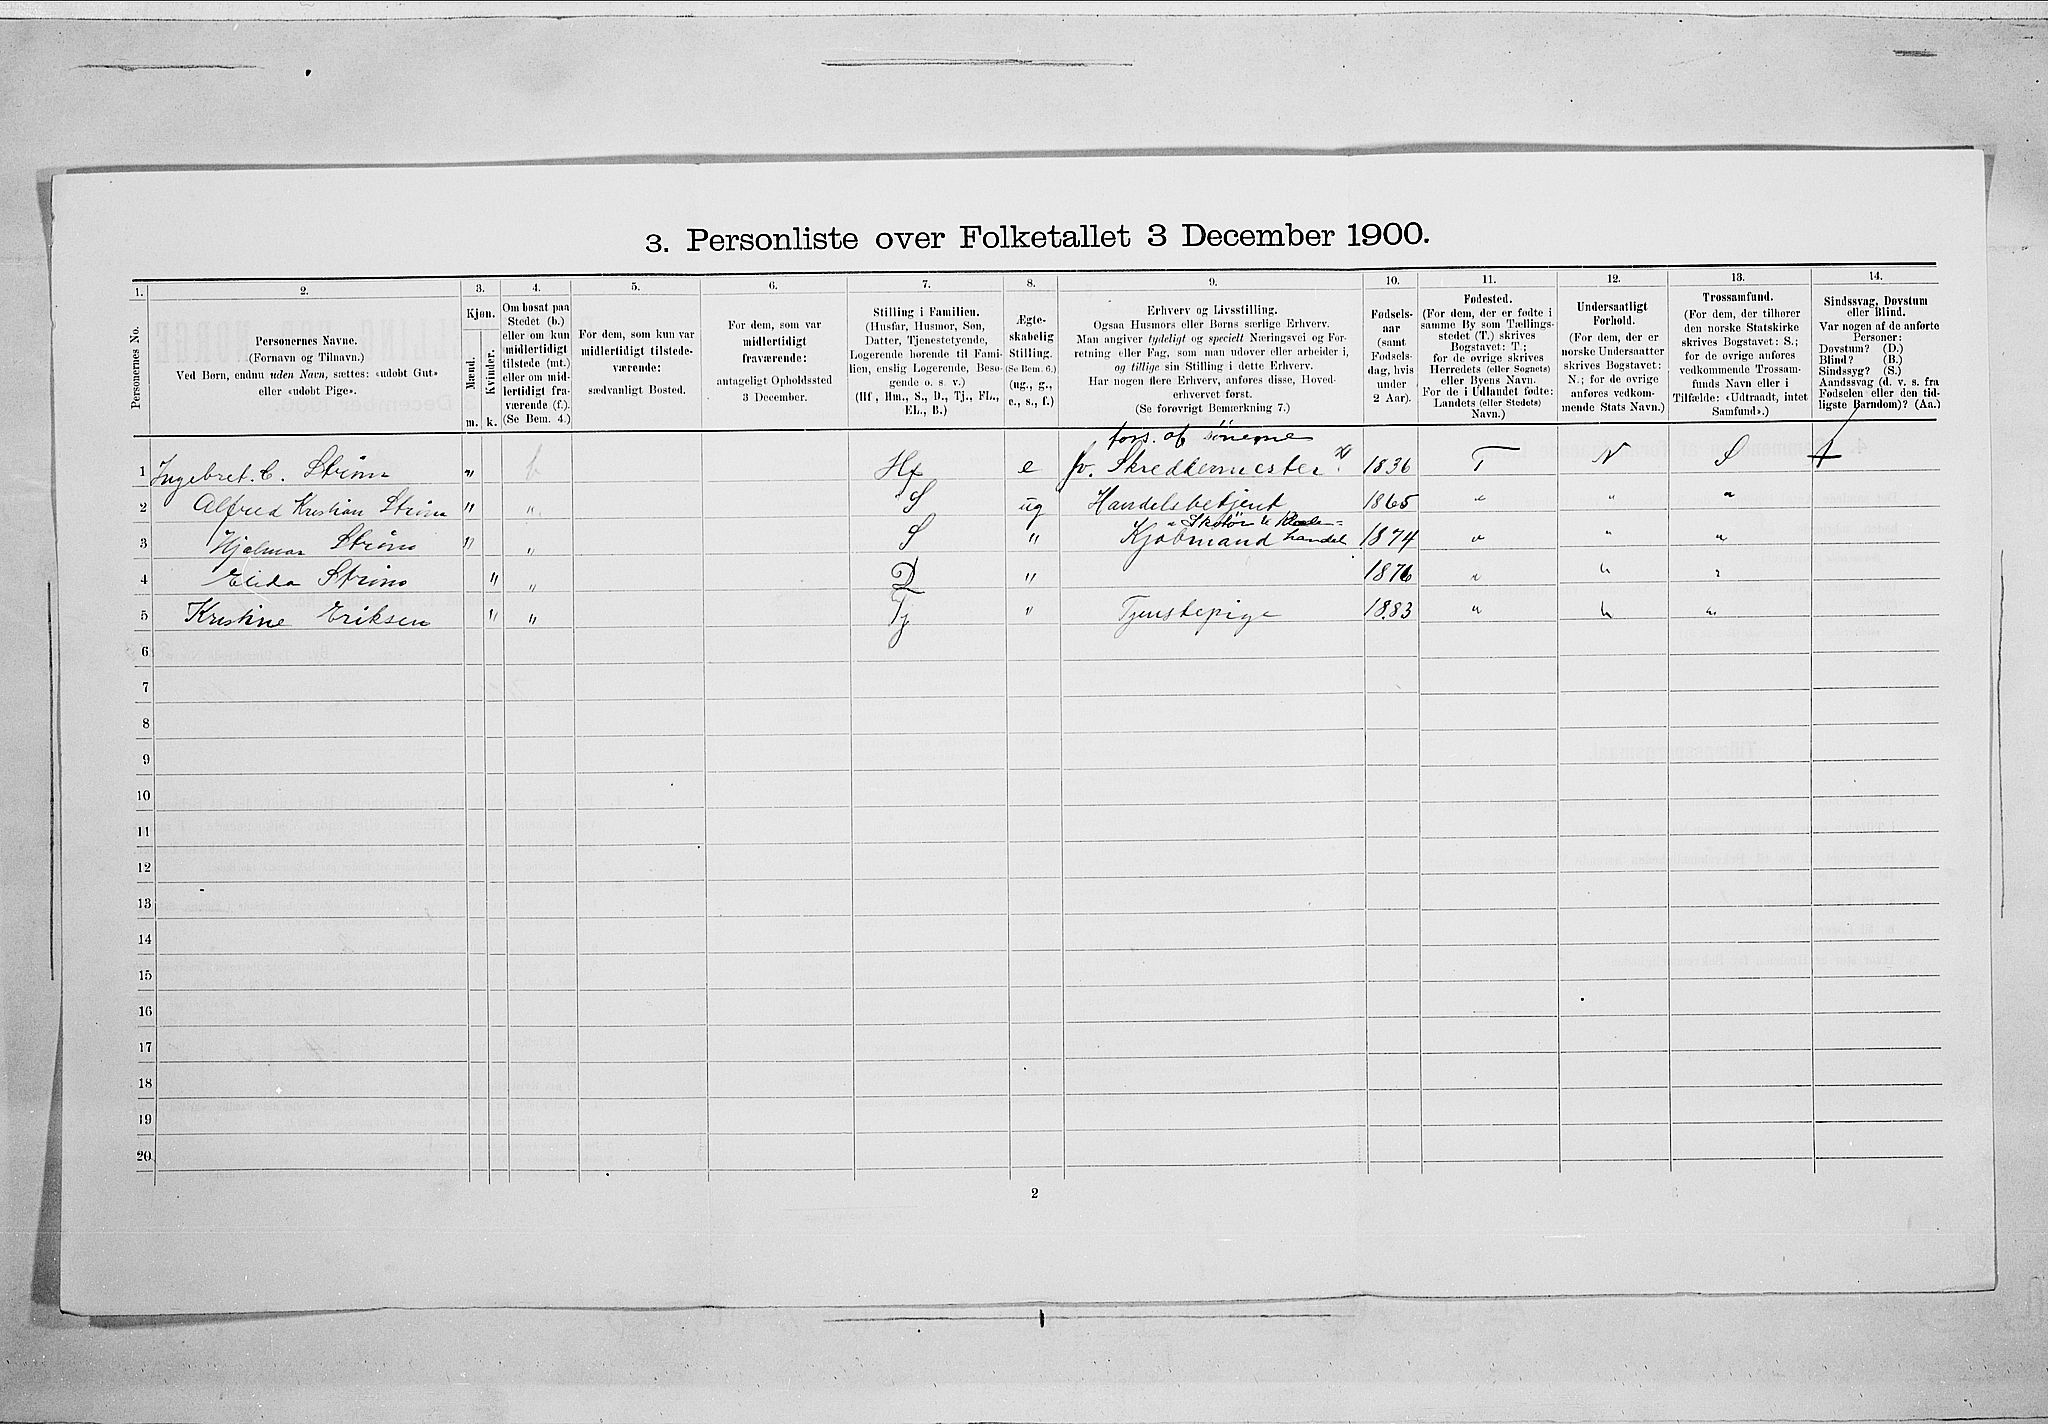 3. Personliste over Folketallet 3 December 1900.
1.
2.
3.
4.
5.
6.
7.
8.
9.
10.
11.
12.
13.
14.
Personernes No.
Personernes Navne.
(Fornavn og Tilnavn.)
Ved Børn, endnu uden Navn, sættes: «udøbt Gut»
eller «udøbt Pige».
Kjøn.
Mænd.
Kvinder.
m.
k.
Om bosat paa
Stedet (b.)
eller om kun
midlertidigt
tilstede (mt.)
eller om mid-
lertidigt fra-
værende (f.).
(Se Bem. 4.)
For dem, som kun var
midlertidigt tilstede-
værende:
sædvanligt Bosted.
For dem, som var
midlertidigt
fraværende:
antageligt Opholdssted
3 December.
Stilling i Familien.
(Husfar, Husmor, Søn,
Datter, Tjenestetyende,
Logerende hørende til Fami-
lien, enslig Logerende, Besø-
gende o. s. v.)
(Hf., Hm., S., D., Tj., FL.,
EL., B.)
Ægte-
skabelig
Stilling.
(Se Bem. 6.)
(ug., g.,
e., s., f.)
Erhverv og Livsstilling.
Ogsaa Husmors eller Børns særlige Erhverv.
Man angiver tydeligt og specielt Næringsvei og For-
retning eller Fag, som man udover eller arbeider i,
og tillige sin Stilling i dette Erhverv.
Har nogen flere Erhverv, anføres disse, Hoved-
erhvervet først.
(Se forøvrigt Bemærkning 7.)
Fødsels-
aar
(samt
Fødsels-
dag, hvis
under
2 Aar).
Fødested.
(For dem, der er fødte i
samme By som Tællings-
stedet (T.) skrives
Bogstavet: T.;
for de øvrige skrives
Herredets (eller Sognets)
eller Byens Navn.
For de i Udlandet fødte:
Landets (eller Stedets)
Navn.)
Undersaatligt
Forhold.
(For dem, der er
norske Undersaatter
skrives Bogstavet:
N.; for de øvrige
anføres vedkom-
mende Stats Navn.)
Trossamfund.
(For dem, der tilhører
den norske Statskirke
skrives Bogstavet: S.;
for de øvrige anføres
vedkommende Trossam-
funds Navn eller i
Tilfælde: «Udtraadt, intet
Samfund».)
Sindssvag, Døvstum
eller Blind.
Var nogen af de anførte
Personer:
Døvstum? (D.)
Blind? (B.)
Sindssyg? (S.)
Aandssvag (d. v. s. fra
Fødselen eller den tid-
ligste Barndom)? (Aa.)
fors. af sønerne
1 Ingebret. C. Strøm " b Hf e fv. Skreddermester 1836 T N S
2 Alfred Kristian Strøm " " S ug Handelsbetjent 1865 " " "
" Skotøi &
3 Hjalmar Strøm " " S " Kjøbmand handel 1874 " " "
4 Elida Strøm " " D " 1876 " " "
5 Kristine Eriksen " " Tj " Tjenstepige 1883 " " "
6
7
8
9
10
11
12
13
14
15
16
17
18
19
20
2